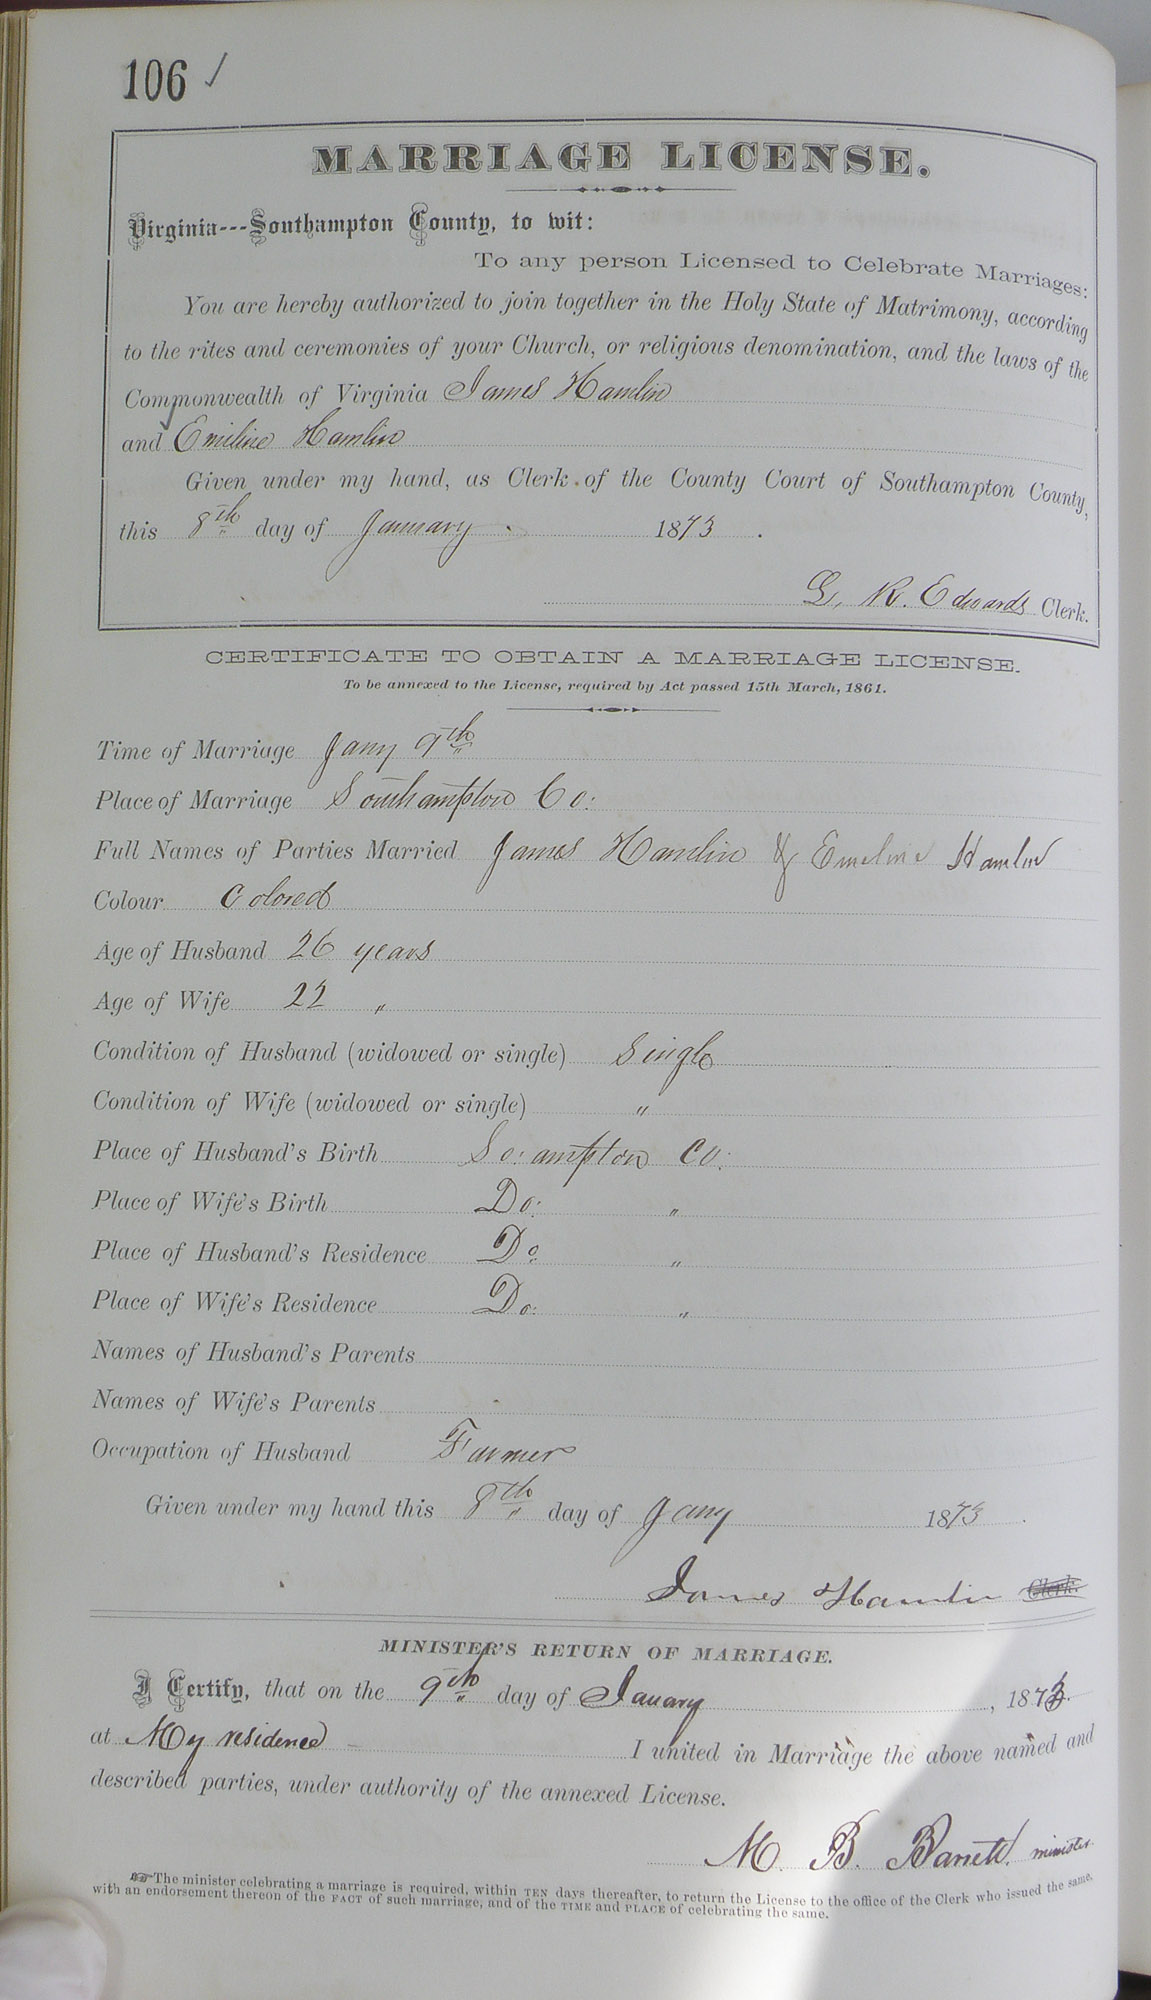 106 ✓
MARRIAGE LICENSE.
Virginia---Southampton County, to wit:
To any person Licensed to Celebrate Marriages:
You are hereby authorized to join together in the Holy State of Matrimony, according
to the rites and ceremonies of your Church, or religious denomination, and the laws of the
Commonwealth of Virginia James Hamlin
and Emiline Hamlin
Given under my hand, as Clerk of the County Court of Southampton County,
this 8th day of January 1873.
L. R. Edwards Clerk.
CERTIFICATE TO OBTAIN A MARRIAGE LICENSE.
To be annexed to the License, required by Act passed 15th March, 1861.
Time of Marriage Jany 9th
Place of Marriage Southampton Co:
Full Names of Parties Married James Hamlin & Emeline Hamlin
Colour Colored
Age of Husband 26 years
Age of Wife 22 "
Condition of Husband (widowed or single) Single
Condition of Wife (widowed or single) "
Place of Husband's Birth So: ampton Co:
Place of Wife's Birth Do: "
Place of Husband's Residence Do: "
Place of Wife's Residence Do: "
Names of Husband's Parents
Names of Wife's Parents
Occupation of Husband Farmer
Given under my hand this 8th day of Jany 1873.
James Hamlin Clerk.
MINISTER'S RETURN OF MARRIAGE.
I Certify, that on the 9th day of Januay, 1873.
at My residence I united in Marriage the above named and
described parties, under authority of the annexed License.
M. B. Barrett. minister
☞The minister celebrating a marriage is required, within TEN days thereafter, to return the License to the office of the Clerk who issued the same,
with an endorsement thereon of the FACT of such marriage, and of the TIME and PLACE of celebrating the same.